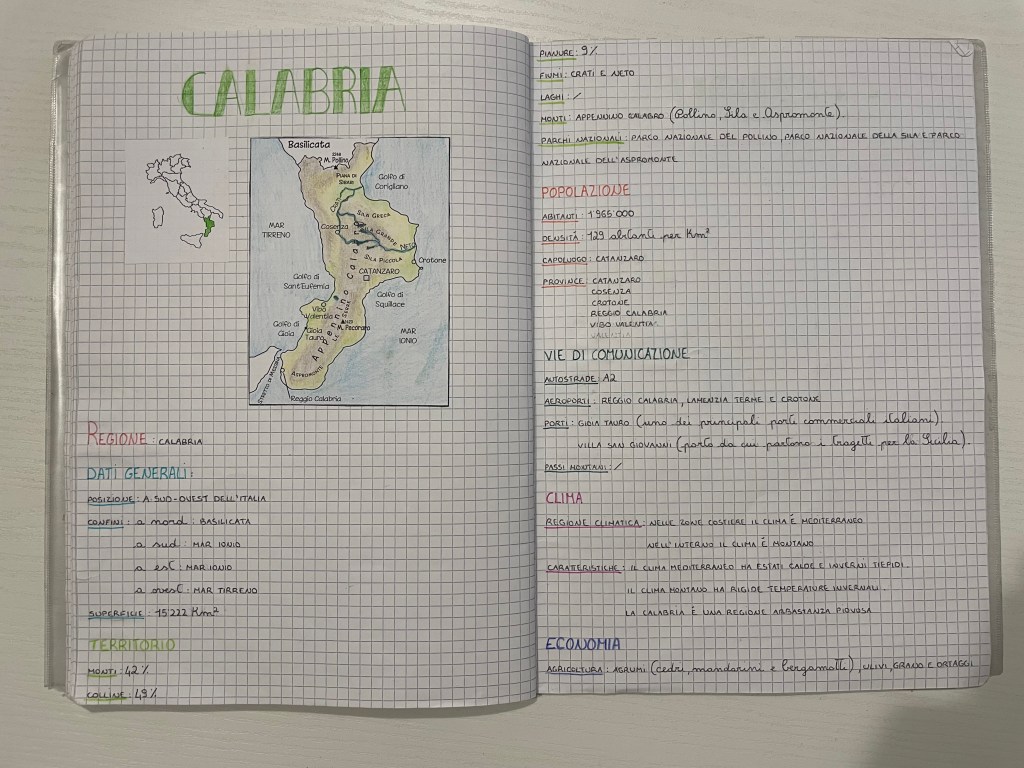 CALABRIA
Basilicata
M. Pollino
PIANA DI
SIBARI
Golfo di
Corigliano
MAR
TIRRENO
CRATI
SILA GRECA
Cosenza
SILA GRANDE
NETO
SILA PICCOLA
Crotone
CATANZARO
Golfo di
Sant'Eufemia
Golfo di
Squillace
Appennino Calabro
Vibo
Valentia
LE SERRE
M. Pecoraro
Golfo di
Gioia
Gioia
Tauro
MAR
IONIO
ASPROMONTE
STRETTO DI MESSINA
Reggio Calabria
REGIONE: CALABRIA
DATI GENERALI:
POSIZIONE: A SUD-OVEST DELL'ITALIA
CONFINI: a nord: BASILICATA
a sud: MAR IONIO
a est: MAR IONIO
a ovest: MAR TIRRENO
SUPERFICIE: 15'222 Km²
TERRITORIO
MONTI: 42%
COLLINE: 49%
PIANURE: 9%
FIUMI: CRATI E NETO
LAGHI: /
MONTI: APPENNINO CALABRO (Pollino, Sila e Aspromonte).
PARCHI NAZIONALI: PARCO NAZIONALE DEL POLLINO, PARCO NAZIONALE DELLA SILA E PARCO
NAZIONALE DELL'ASPROMONTE
POPOLAZIONE
ABITANTI: 1'965'000
DENSITÀ: 129 abitanti per Km²
CAPOLUOGO: CATANZARO
PROVINCE: CATANZARO
COSENZA
CROTONE
REGGIO CALABRIA
VIBO VALENTIA
VIE DI COMUNICAZIONE
AUTOSTRADE: A2
AEROPORTI: REGGIO CALABRIA, LAMENZIA TERME E CROTONE
PORTI: GIOIA TAURO (uno dei principali porti commerciali italiani).
VILLA SAN GIOVANNI (porto da cui partono i tragetti per la Sicilia).
PASSI MONTANI: /
CLIMA
REGIONE CLIMATICA: NELLE ZONE COSTIERE IL CLIMA È MEDITERRANEO
NELL'INTERNO IL CLIMA È MONTANO
CARATTERISTICHE: IL CLIMA MEDITERRANEO HA ESTATI CALDE E INVERNI TIEPIDI.
IL CLIMA MONTANO HA RIGIDE TEMPERATURE INVERNALI.
LA CALABRIA È UNA REGIONE ABBASTANZA PIOVOSA
ECONOMIA
AGRICOLTURA: AGRUMI (cedri, mandarini e bergamotti), ULIVI, GRANO E ORTAGGI